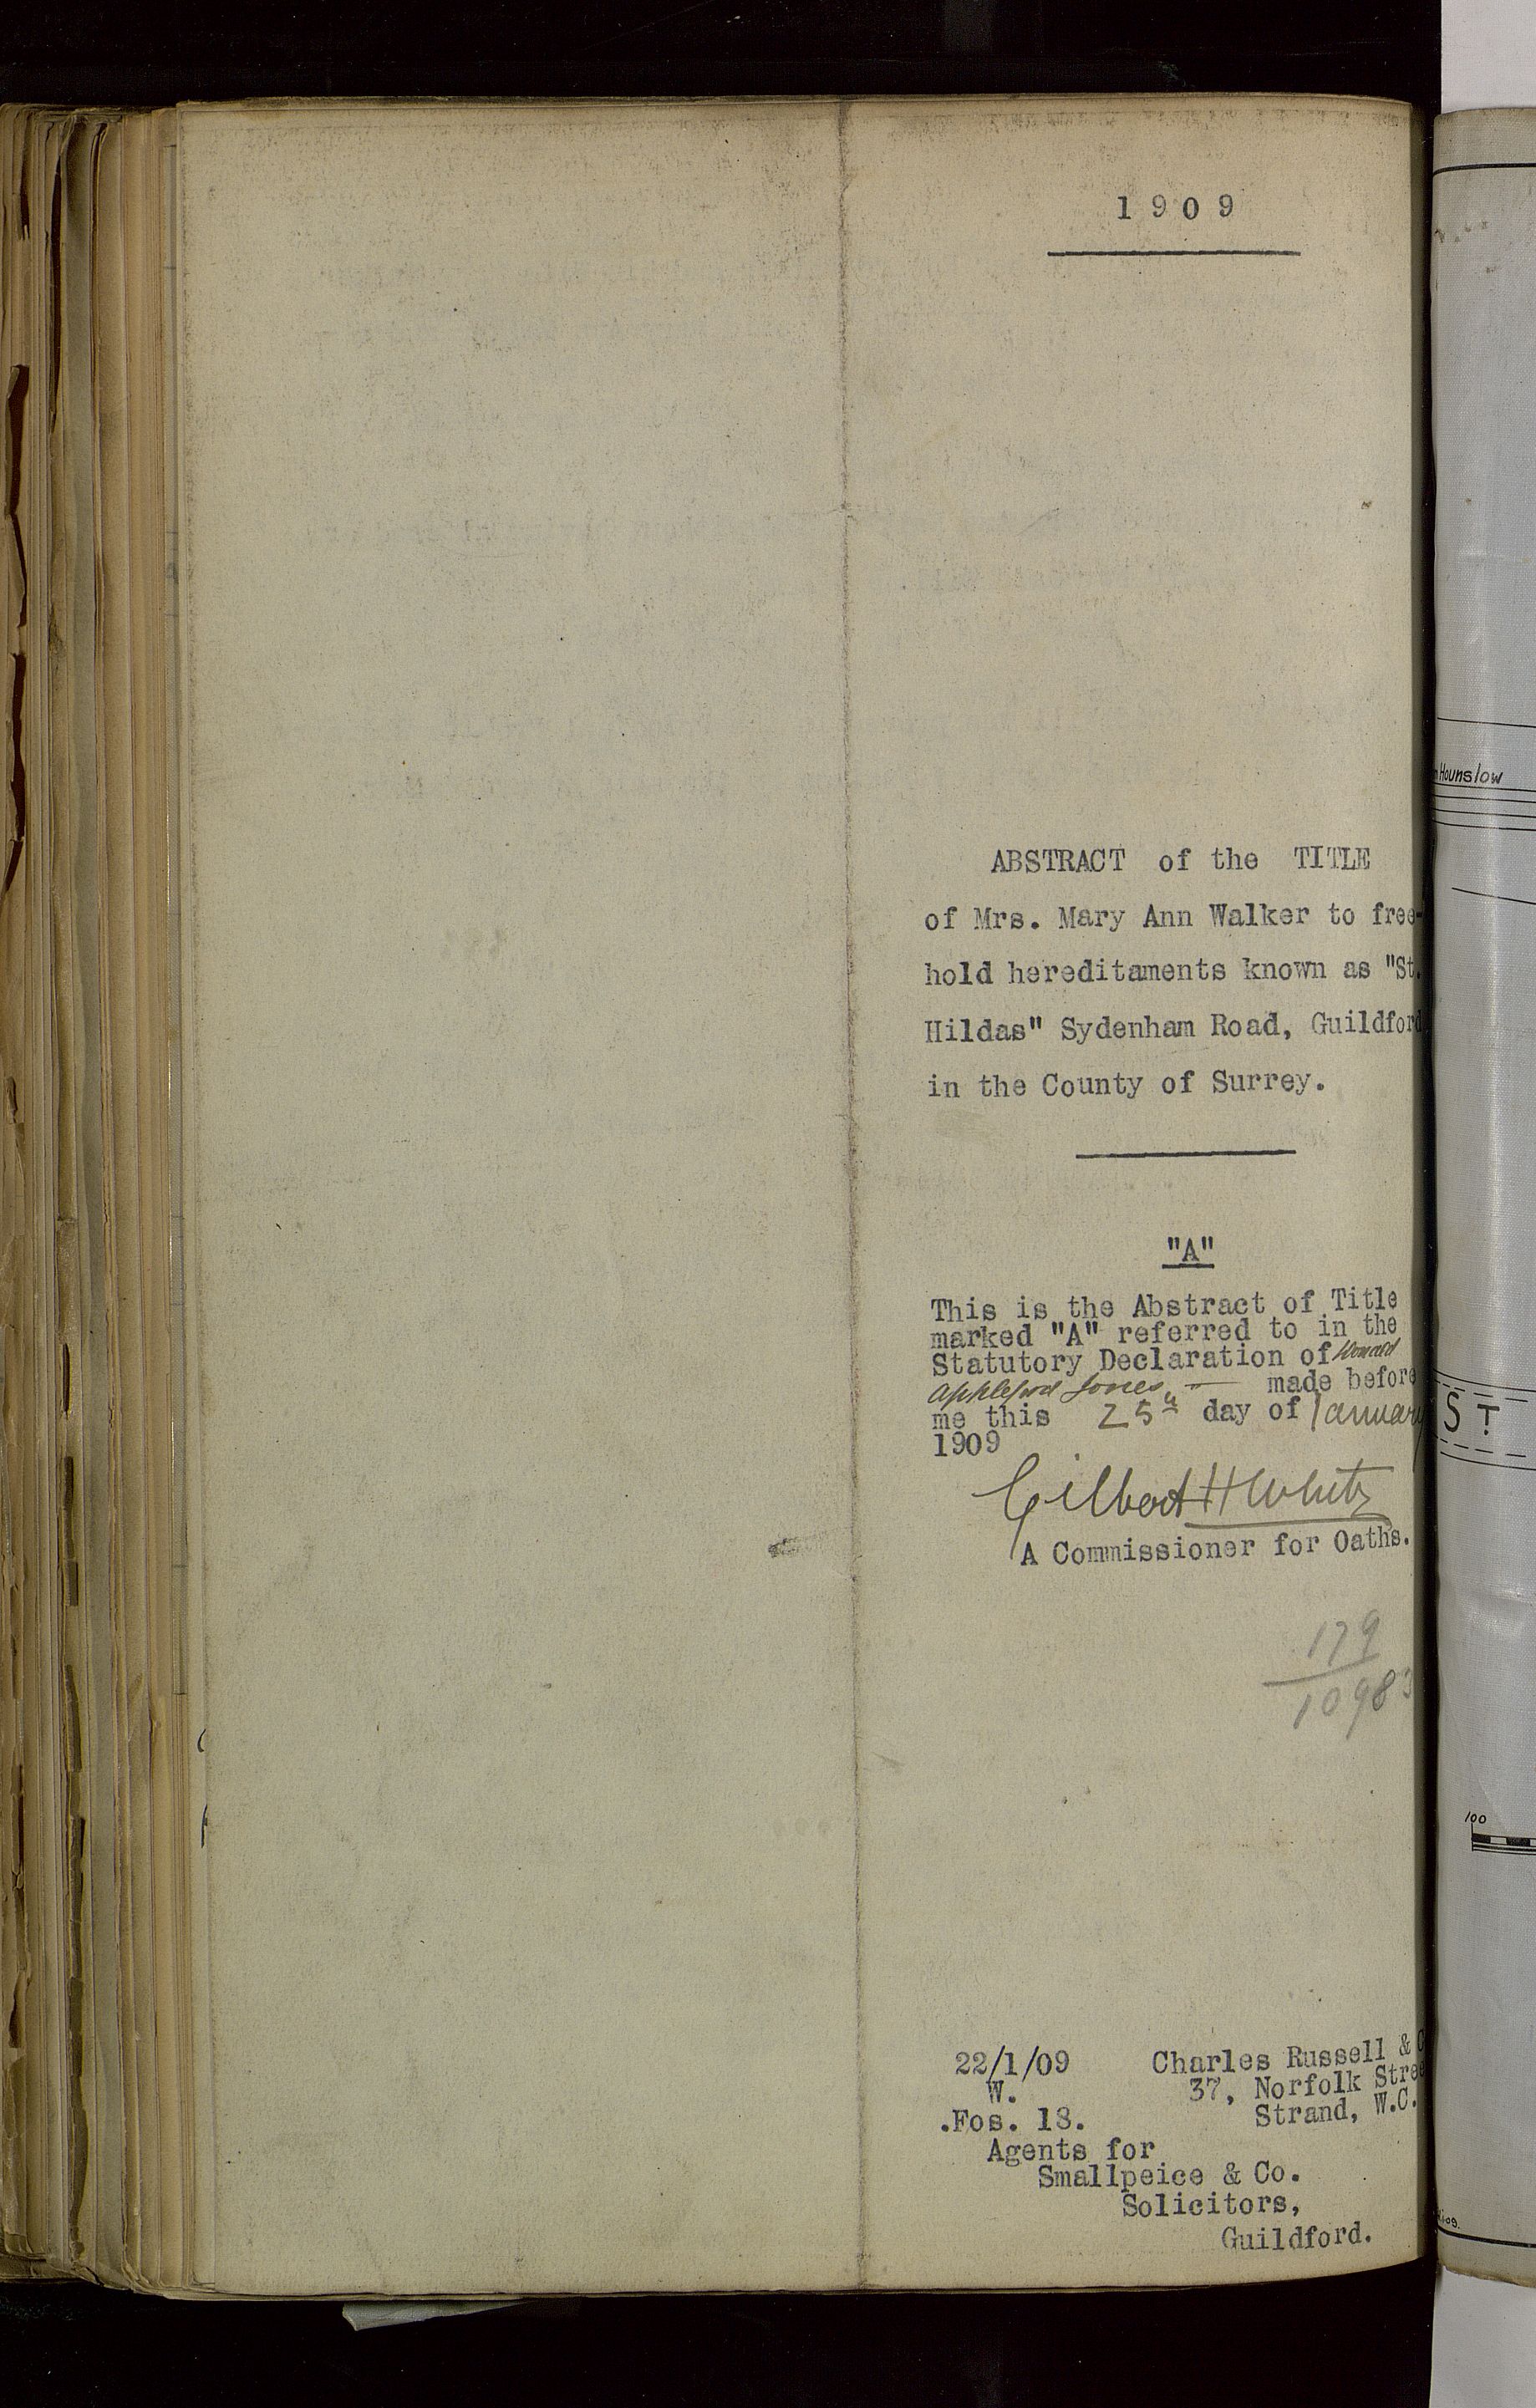 1909
ABSTRACT of the TITLE
of Mrs. Mary Ann Walker to free-
hold hereditaments known as "St.
Hildas" Sydenham Road, Guildford
in the County of Surrey.
"A"
This is the Abstract of Title
marked "A" referred to in the
Statutory Declaration of
Jones made before
me this 25th day of January
1909
Gilbert H White
A Commissioner for Oaths.
179
1098
22/1/09 Charles Russell & C
W. 37, Norfolk Stree
.Fos. 18. Strand, W.C.
Agents for
Smallpeice & Co.
Solicitors,
Guildford.
Hounslow
ST
100